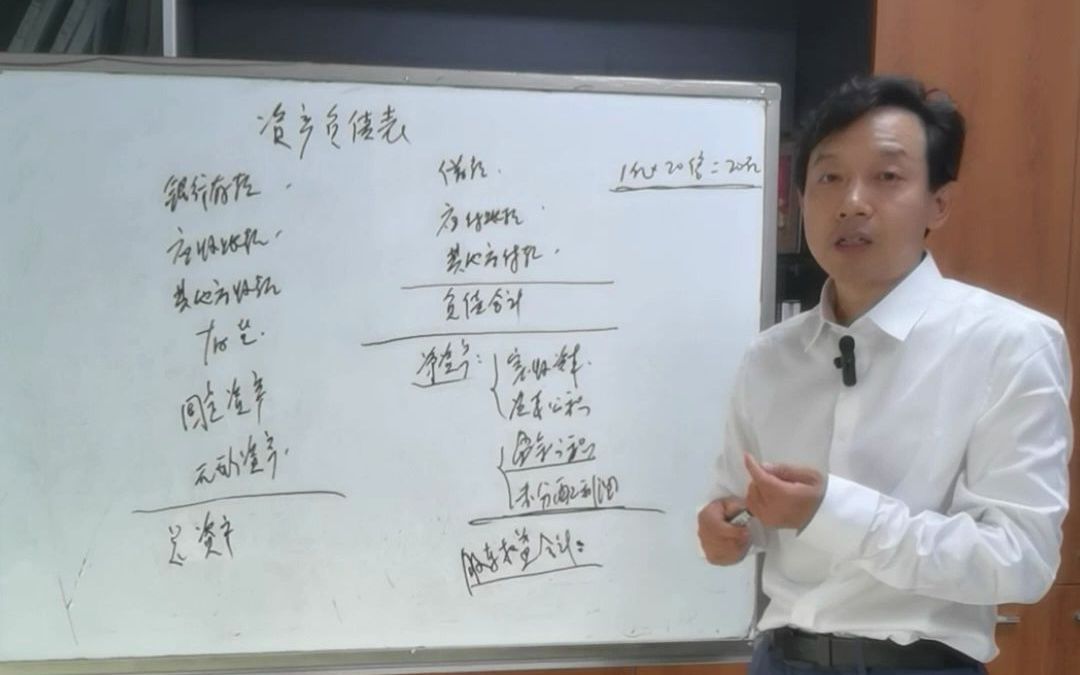 资产负债表
银行存款
应收账款
其他应收款
存货
固定资产
无形资产
总资产
借款
应付账款
其他应付款
负债合计
净资产：
实收资本
资本公积
盈余公积
未分配利润
股东权益合计：
1元×20倍=20元